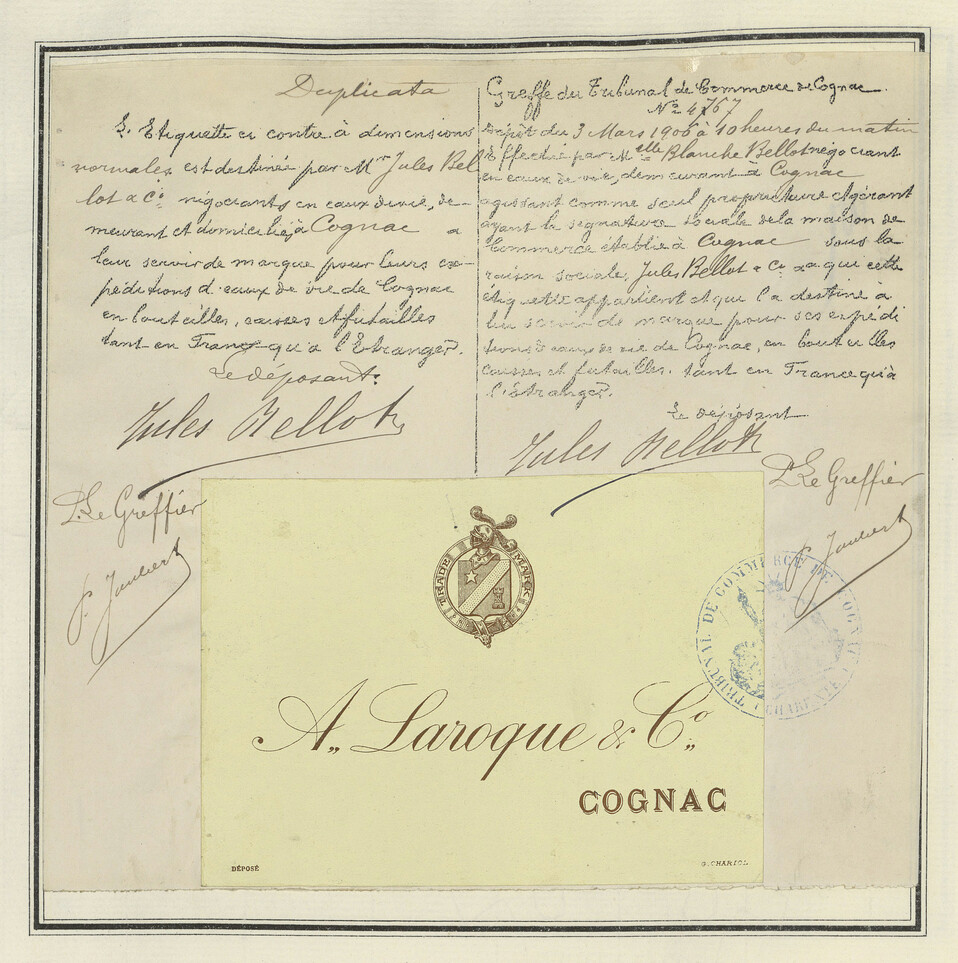 Duplicata
L'Etiquette ci contre à dimensions
normales est destiné par Mr Jules Bel
lot & Cie négociants en eaux de vie, de-
meurant et domicilié à Cognac a
leur servir de marque pour leurs ex-
péditions d'eaux de vie de Cognac
en bouteilles, caisses et futailles
tant en France qu'a l'Etranger.
Le déposant.
Jules Bellot
Pr Le Greffier
Greffe du Tribunal de Commerce de Cognac.
No 4767
Dépôt du 3 Mars 1906 à 10 heures du matin
Effectué par Melle Blanche Bellot négociant
en eaux de vie, demeurant à Cognac
agissant comme seul propriétaire et gérant
ayant la signature sociale de la maison de
Commerce établie à Cognac sous la
raison sociale, Jules Bellot & Cie a qui cette
étiquette appartient et que l'a destiné à
lui servir de marque pour ses expédi
tions d'eaux de vie de Cognac, en bouteilles
caisses et futailles. tant en France qu'à
l'étranger.
Le déposant
Jules Bellot
Pr Le Greffier
TRADE MARK
TRIBUNAL DE COMMERCE DE COGNAC
(CHARENTE)
A. Laroque & Co.
COGNAC
DÉPOSÉ
G. CHARIOL